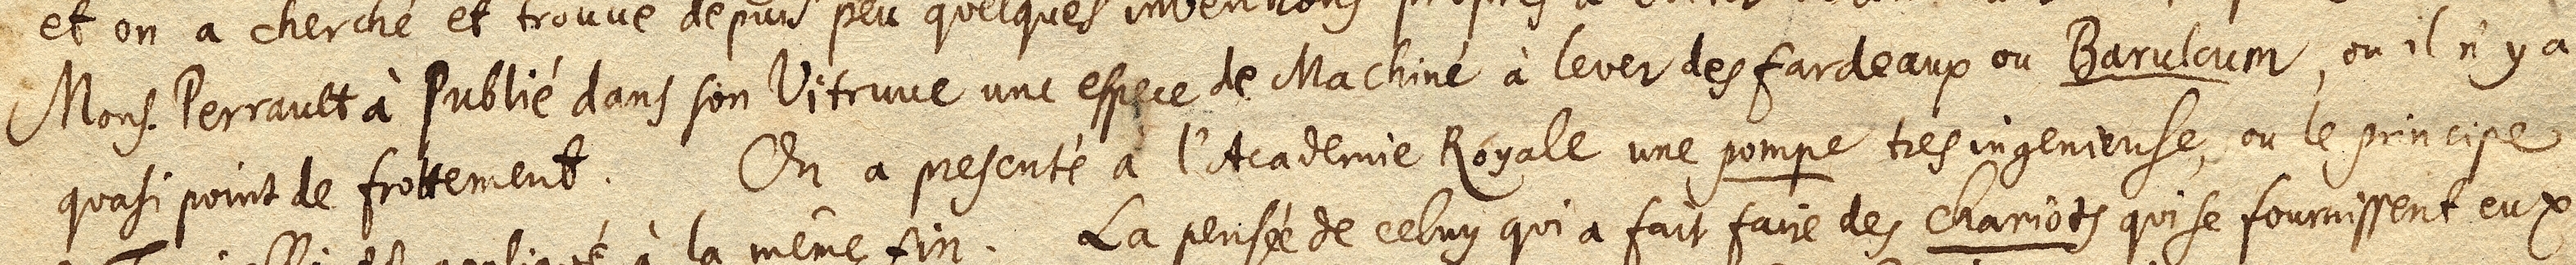 et on a cherché et trouve depuis peu quelques inventions propres à
Mons. Perrault à Publié dans son Vitruve une espece de Machine à lever des fardeaux ou Barulcum, ou il n'y a
quasi point de frottement. On a presenté à l'Academie Royale une pompe tres ingenieuse, ou le principe
est appliqué à la même fin. La pensée de celuy qui a fait faire des chariots qui se fournissent eux